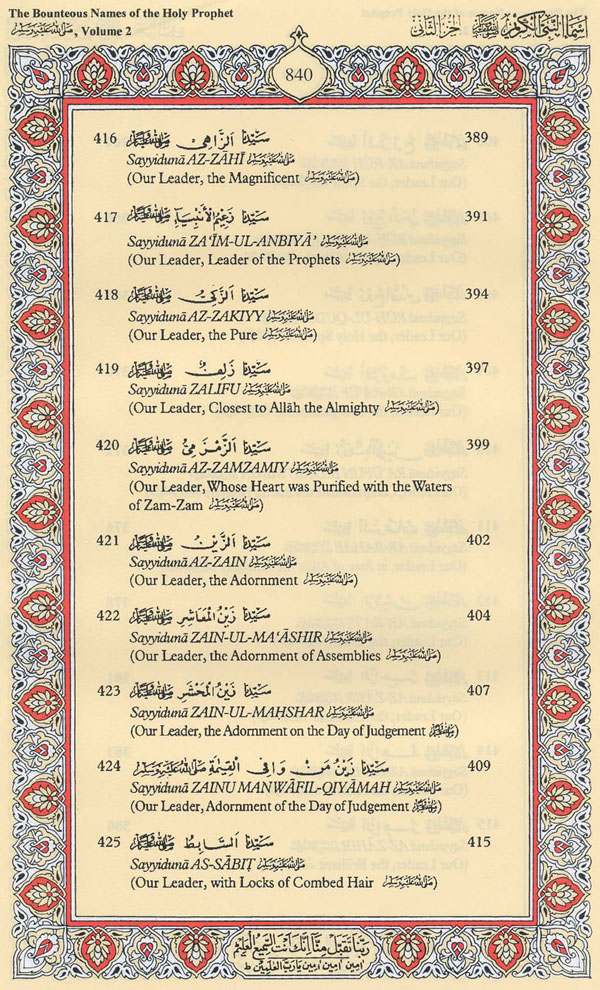 The Bounteous Names of the Holy Prophet
ﷺ, Volume 2
اسماء النبی الکریم ﷺ الجزء الثانی
840
416 سَيِّدُنَا اَلزَّاهِيْ ﷺ 389
Sayyidunā AZ-ZĀHĪ ﷺ
(Our Leader, the Magnificent ﷺ)
417 سَيِّدُنَا زَعِيْمُ الْأَنْبِيَاءِ ﷺ 391
Sayyidunā ZA‘ĪM-UL-ANBIYĀ’ ﷺ
(Our Leader, Leader of the Prophets ﷺ)
418 سَيِّدُنَا اَلزَّكِيُّ ﷺ 394
Sayyidunā AZ-ZAKIYY ﷺ
(Our Leader, the Pure ﷺ)
419 سَيِّدُنَا زَلِفٌ ﷺ 397
Sayyidunā ZALIFU ﷺ
(Our Leader, Closest to Allāh the Almighty ﷺ)
420 سَيِّدُنَا اَلزَّمْزَمِيُّ ﷺ 399
Sayyidunā AZ-ZAMZAMIY ﷺ
(Our Leader, Whose Heart was Purified with the Waters
of Zam-Zam ﷺ)
421 سَيِّدُنَا اَلزَّيْنُ ﷺ 402
Sayyidunā AZ-ZAIN ﷺ
(Our Leader, the Adornment ﷺ)
422 سَيِّدُنَا زَيْنُ الْمَعَاشِرِ ﷺ 404
Sayyidunā ZAIN-UL-MA‘ĀSHIR ﷺ
(Our Leader, the Adornment of Assemblies ﷺ)
423 سَيِّدُنَا زَيْنُ الْمَحْشَرِ ﷺ 407
Sayyidunā ZAIN-UL-MAḤSHAR ﷺ
(Our Leader, the Adornment on the Day of Judgement ﷺ)
424 سَيِّدُنَا زَيْنُ مَنْ وَافَى الْقِيٰمَةِ ﷺ 409
Sayyidunā ZAINU MAN WĀFIL-QIYĀMAH ﷺ
(Our Leader, Adornment of the Day of Judgement ﷺ)
425 سَيِّدُنَا اَلسَّابِطُ ﷺ 415
Sayyidunā AS-SĀBIṬ ﷺ
(Our Leader, with Locks of Combed Hair ﷺ)
ربنا تقبل منا انك انت السميع العليم
امين امين امين يا رب العلمين ط